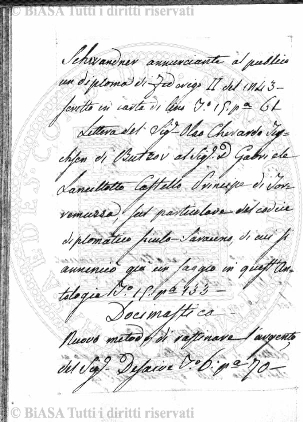 © BiASA Tutti i diritti riservati
Schwandner annunciante al publico
un diploma di Federigo II del 1243
scritto in carta di lino T.o 15. p.na 61
Lettera del Sig.r Olao Gherardo Tych-
sen di Butzov al Sig.r D. Gabriele
Lancellotto Castello Principe di Tor-
remuzza, sul particolare del codice
diplomatico siculo-Saraceno, di cui si
annunciò già un saggio in quest'An-
tologia T.o 15. p.na 433
Docimastica
Nuovo metodo di raffinare l'argento
del Sig.r T.o 6. p.na 70
© BiASA Tutti i diritti riservati